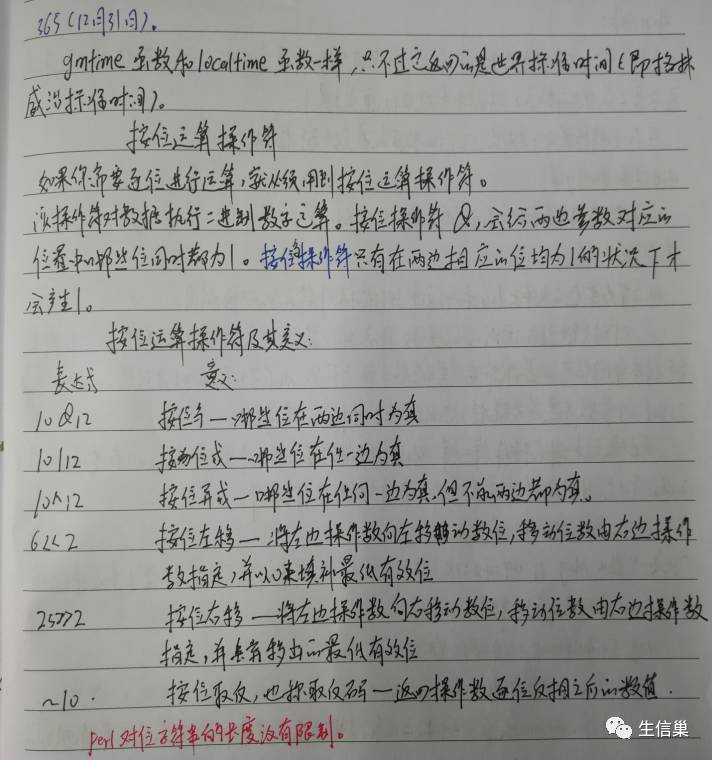 365(12月31日)。
gmtime 函数和localtime 函数一样,只不过它返回的是世界标准时间(即格林
威治标准时间)。
按位运算操作符
如果你需要逐位进行运算,就必须用到按位运算操作符。
该操作符对数据执行二进制数字运算。按位操作符 &,会给两边参数对应的
位置中哪些位同时都为1。按位操作符只有在两边相应的位均为1的状况下才
会产生1。
按位运算操作符及其意义:
表达式 意义:
10&12 按位与—哪些位在两边同时为真
10|12 按位或—哪些位在任一边为真
10^12 按位异或—哪些位在任何一边为真,但不能两边都为真。
6<<2 按位左移—将左边操作数向左移动数位,移动位数由右边操作
数指定,并以0来填补最低有效位
25>>2 按位右移—将左边操作数向右移动数位,移动位数由右边操作数
指定,并丢弃移出的最低有效位
~10. 按位取反,也称取反码—返回操作数逐位反相之后的数值.
perl对位字符串的长度没有限制。
生信巢